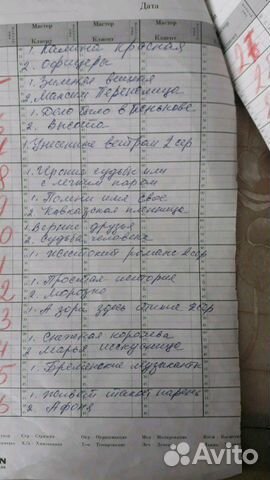 Дата
Мастер Мастер Мастер
Клиент Клиент Клиент
1. Калина красная
2. Офицеры
1. Зимняя вишня
2. Максим Перепелица
1. Дело было в Пенькове
2. Высота
Унесённые ветром 2 сер
1. Ирония судьбы или
с легким паром
1. Помни имя свое
2 Кавказская пленница
1. Верные друзья
2. Судьба человека
1. Жестокий романс 2 сер
1. Простая история
2. Морозко
1. А зори здесь тихие 2 сер
1. Снежная королева
2. Марья искусница
1. Бременские музыканты
1. Живёт такой парень
2. Афоня
Стр Стрижка
Х/З Химзавивка
Окр Окрашивание
Тон Тонирование
Avito